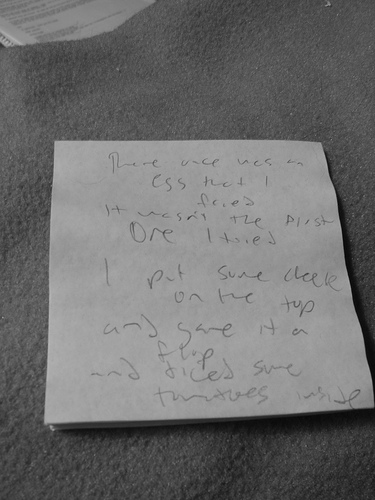 There once was an
egg that I
fried
It wasn't the first
One I tried
I put some
on the top
and gave it a
flop
and diced some
tomatoes inside